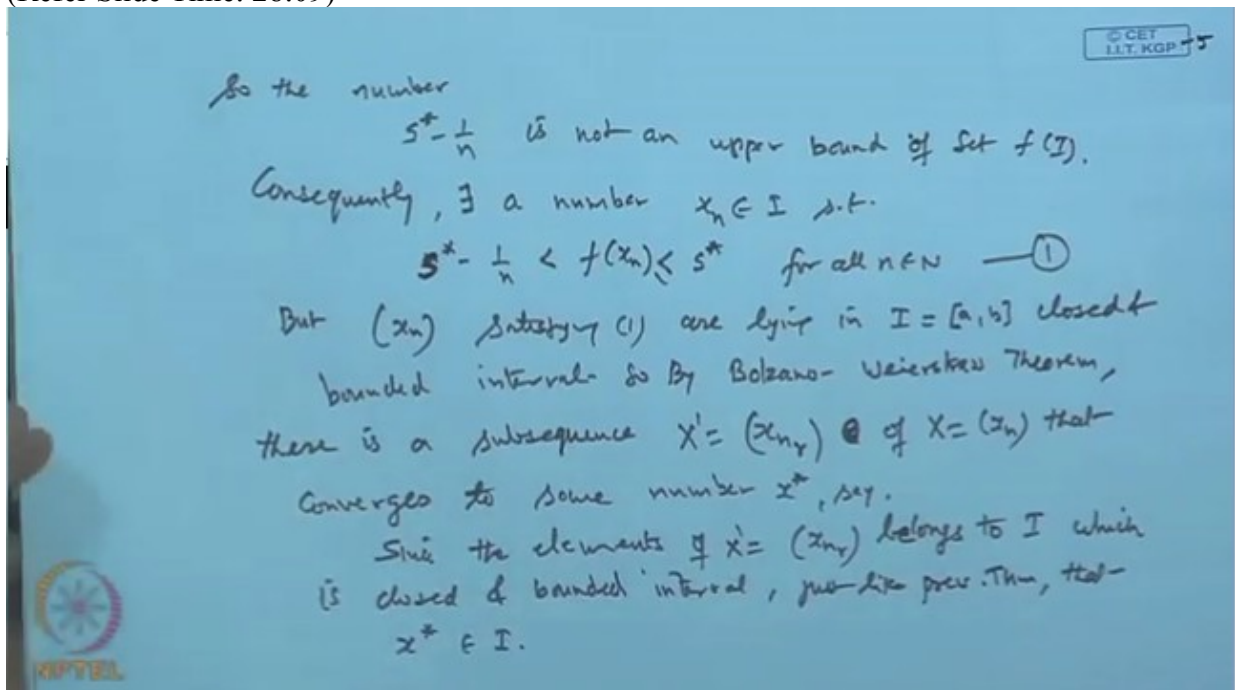 © CET
I.I.T. KGP -5
So the number
s* - 1/n is not an upper bound of Set f(I).
Consequently, ∃ a number xₙ ∈ I s.t.
s* - 1/n < f(xₙ) ≤ s* for all n ∈ N — ①
But (xₙ) Satisfying (1) are lying in I = [a, b] closed &
bounded interval. So By Bolzano- Weierstrass Theorem,
there is a subsequence X' = (xₙᵣ) of X = (xₙ) that
converges to some number x*, say.
Since the elements of X' = (xₙᵣ) belongs to I which
is closed & bounded interval, just like prev. Thm, that
x* ∈ I.
NPTEL